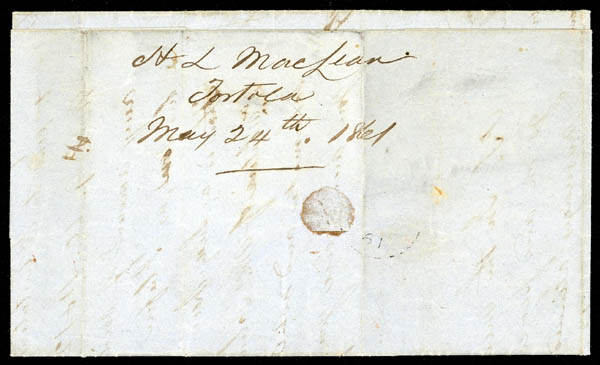 H L MacLean
Tortola
May 24th. 1861